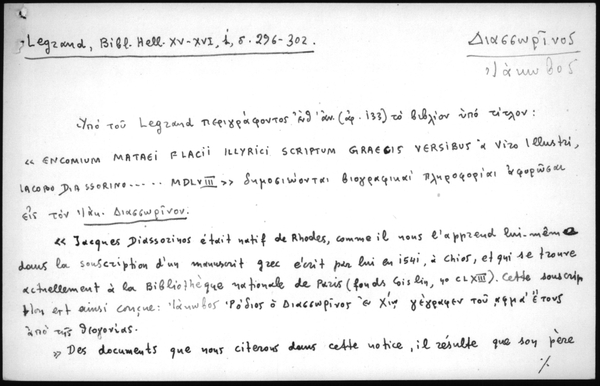 Legrand, Bibl. Hell. XV-XVI, i, σ. 296-302.
Διασσωρῖνος
Ἰάκωβος
Ὑπὸ τοῦ Legrand περιγράφοντος (ἀρ. 133) τὸ βιβλίον ὑπὸ τίτλον:
« ENCOMIUM MATAEI FLACII ILLYRICI SCRIPTUM GRAECIS VERSIBUS a Viro Illustri,
IACOBO DIASSORINO..... MDLVIII » δημοσιεύονται βιογραφικαὶ πληροφορίαι ἀφορῶσαι
εἰς τὸν Ἰάκ. Διασσωρῖνον.
« Jacques Diassorinos était natif de Rhodes, comme il nous l'apprend lui-même
dans la souscription d'un manuscrit grec écrit par lui en 1541, à Chios, et qui se trouve
actuellement à la Bibliothèque nationale de Paris (fonds Coislin, no CLXIII). Cette souscrip
tion est ainsi conçue: Ἰάκωβος Ῥόδιος ὁ Διασσωρῖνος ἐν Χίῳ γέγραφεν τοῦ ͵αφμα΄ ἔτους
ἀπὸ τῆς θεογονίας.
» Des documents que nous citerons dans cette notice, il résulte que son père
./.